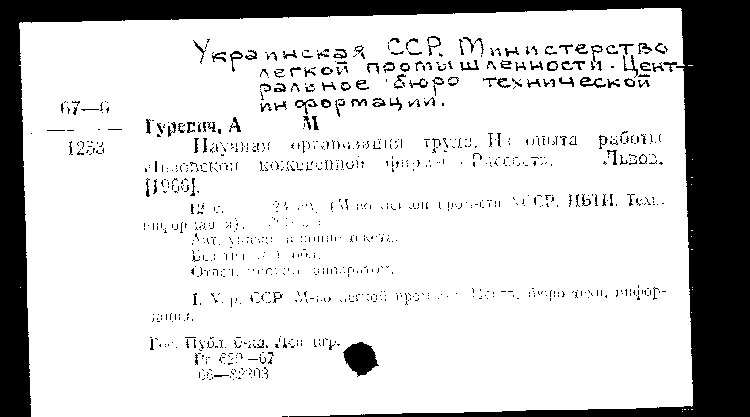 Украинская ССР. Министерство
легкой промышленности. Цент-
ральное бюро технической
информации.
67—6
1253
Гуревич, А М
Научная организация труда. Из опыта работы
Львовской кожевенной фирмы Рассвет. Львов,
[1966].
12 с. (М-во легкой пром-сти УССР. ЦБТИ. Техн.
информация).
Авт. указан в конце текста.
Без тит. л. и обл.
Отпеч. аппаратом.
I. Укр. ССР. М-во легкой пром-сти. Центр. бюро техн. инфор-
мации.
Гос. Публ. б-ка, Ленингр.
Пт 629—67